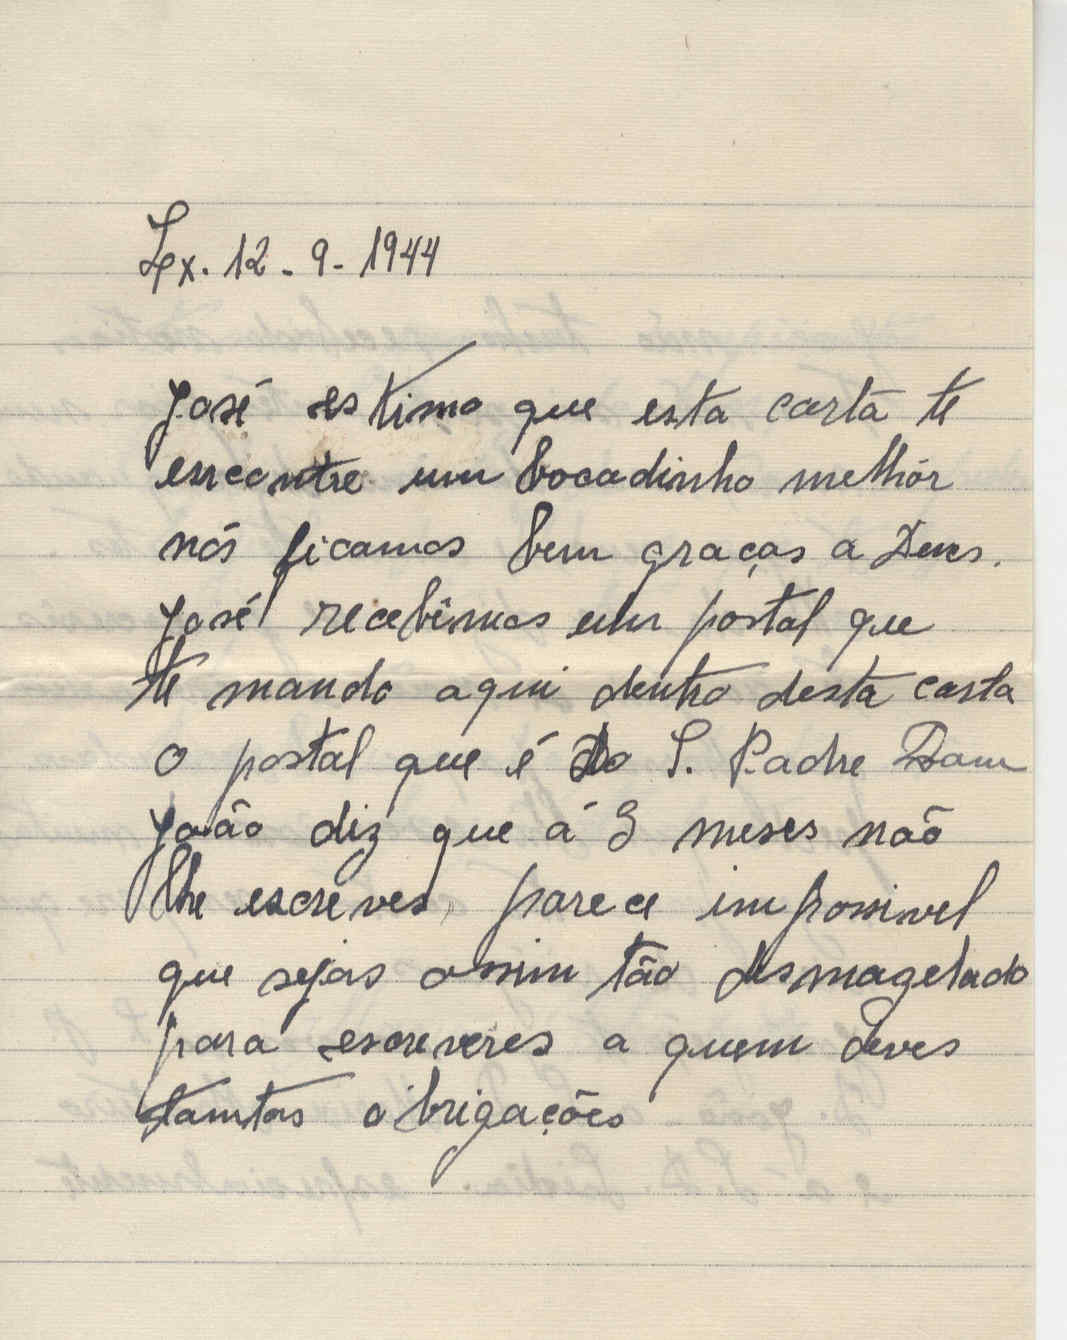 Lx. 12-9-1944
José estimo que esta carta te
encontre um bocadinho melhór
nós ficamos bem graças a Deus.
José recebîmos um postal que
te mando aqui dentro desta carta
o postal que é do S. Padre Dom
João diz que á 3 meses não
lhe escreves, parece impossivel
que sejas assim tão desmazelado
para escreveres a quem deves
tantas obrigações